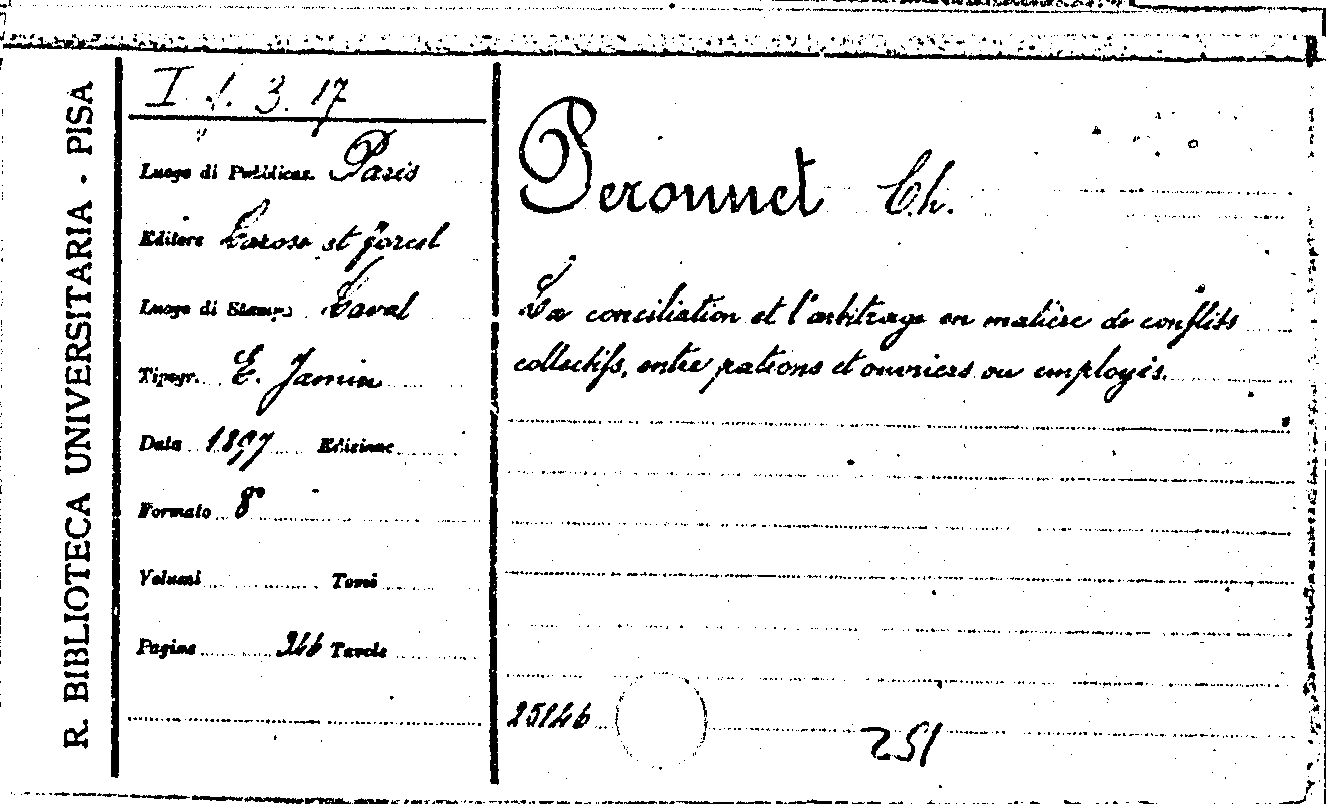 R. BIBLIOTECA UNIVERSITARIA - PISA
I. f. 3. 17
Luogo di Pubblicaz. Paris
Editore Larose et Forcel
Luogo di Stampa Laval
Tipogr. E. Jamin
Data 1897 Edizione
Formato 8°
Volumi Tomi
Pagine 246 Tavole
Peronnet Ch.
La conciliation et l'arbitrage en matière de conflits
collectifs, entre patrons et ouvriers ou employés.
25146
251